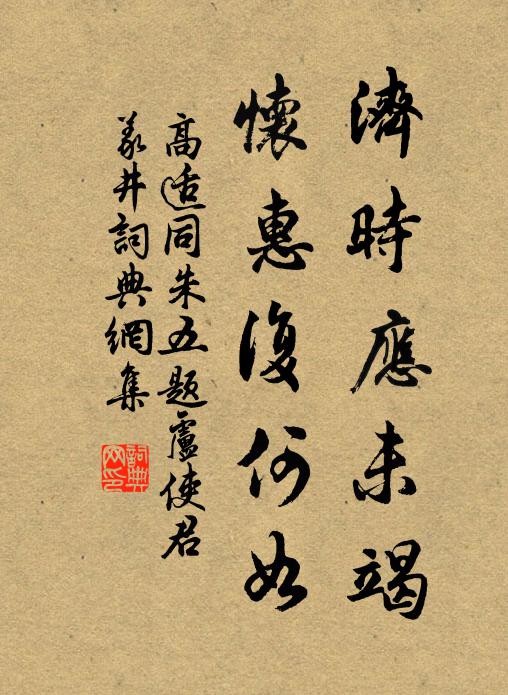 濟時應未竭
懷惠復何如
高适同朱五題盧使君
義井詞典網集
詞典網印